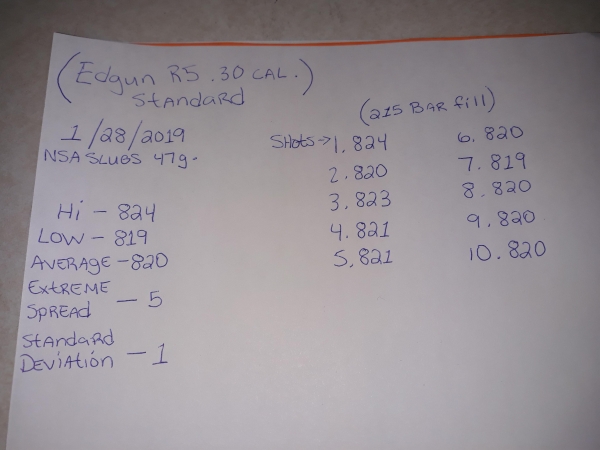 (Edgun R5 .30 CAL.)
Standard
1/28/2019
NSA SLUGS 47g-
Hi - 824
LOW - 819
AVERAGE - 820
EXtREME
SpREAd - 5
StANdaRd
DEViAtión - 1
(215 BAR fill)
SHots→ 1. 824
2. 820
3. 823
4. 821
5. 821
6. 820
7. 819
8. 820
9. 820
10. 820